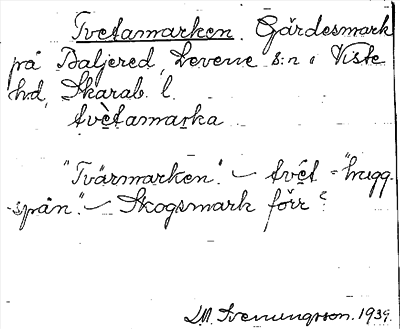 Tvetamarken. Gärdesmark
på Baljered, Levene s:n i Viste
hd, Skarab. l.
tvètamarka
"Tvärmarken". – tvét = "hugg-
spån". – Skogsmark förr?
D.A. Svenungsson. 1939.